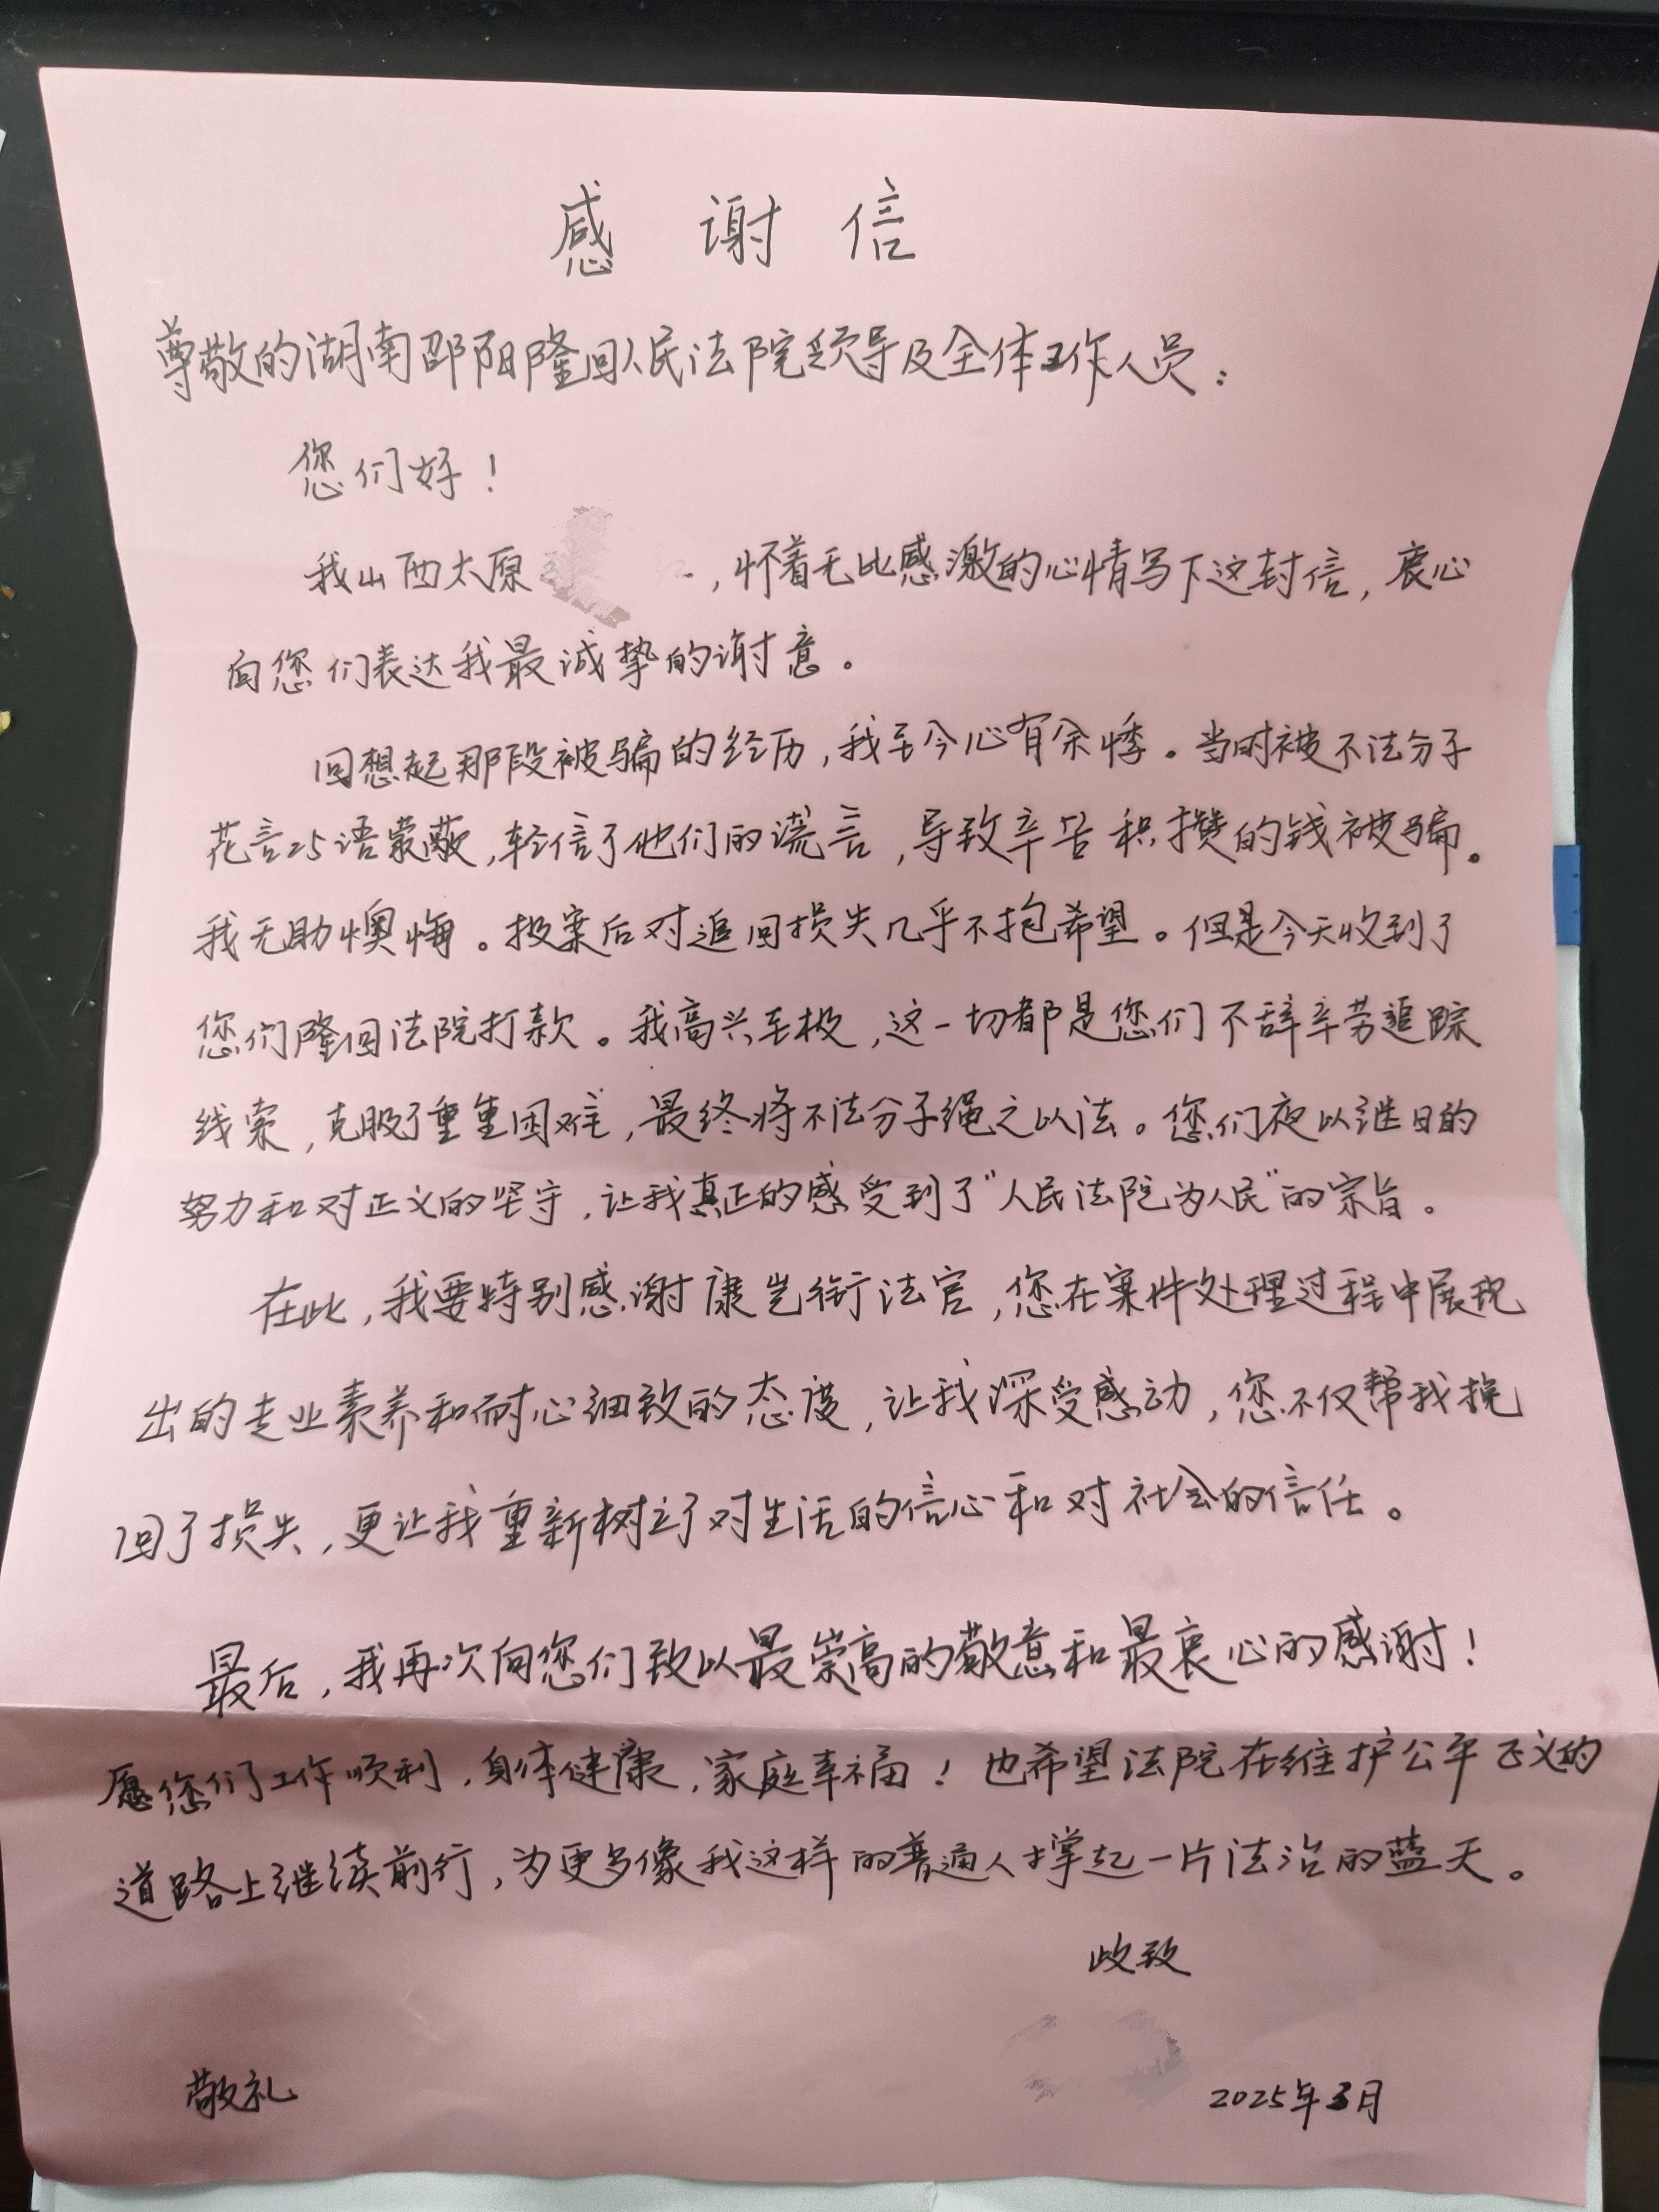 感谢信
尊敬的湖南邵阳隆回人民法院领导及全体工作人员：
您们好！
我山西太原，怀着无比感激的心情写下这封信，衷心
向您们表达我最诚挚的谢意。
回想起那段被骗的经历，我至今心有余悸。当时被不法分子
花言巧语蒙蔽，轻信了他们的谎言，导致辛苦积攒的钱被骗。
我无助懊悔。报案后对追回损失几乎不抱希望。但是今天收到了
您们隆回法院打款。我高兴至极，这一切都是您们不辞辛劳追踪
线索，克服了重重困难，最终将不法分子绳之以法。您们夜以继日的
努力和对正义的坚守，让我真正的感受到了“人民法院为人民”的宗旨。
在此，我要特别感谢康岂衔法官，您在案件处理过程中展现
出的专业素养和耐心细致的态度，让我深受感动，您不仅帮我挽
回了损失，更让我重新树立了对生活的信心和对社会的信任。
最后，我再次向您们致以最崇高的敬意和最衷心的感谢！
愿您们工作顺利，身体健康，家庭幸福！也希望法院在维护公平正义的
道路上继续前行，为更多像我这样的普通人撑起一片法治的蓝天。
此致
敬礼
2025年3月